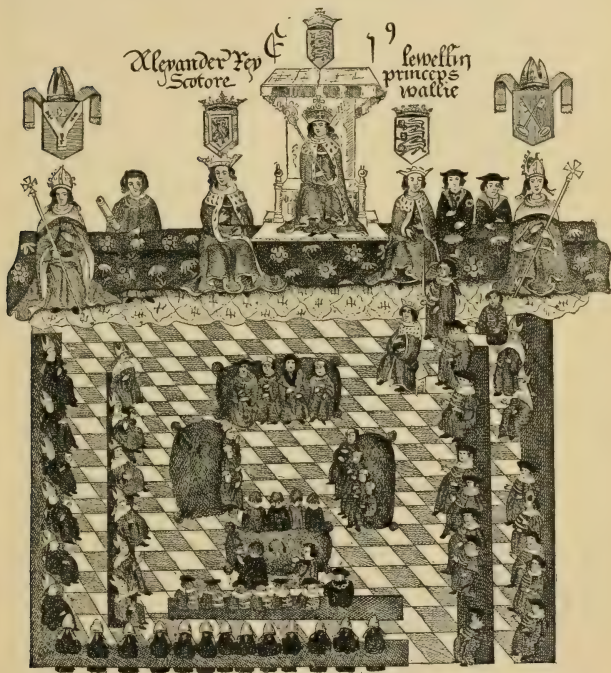 Alexander Rex
Scotore
E 19
lewellin
princeps
wallie